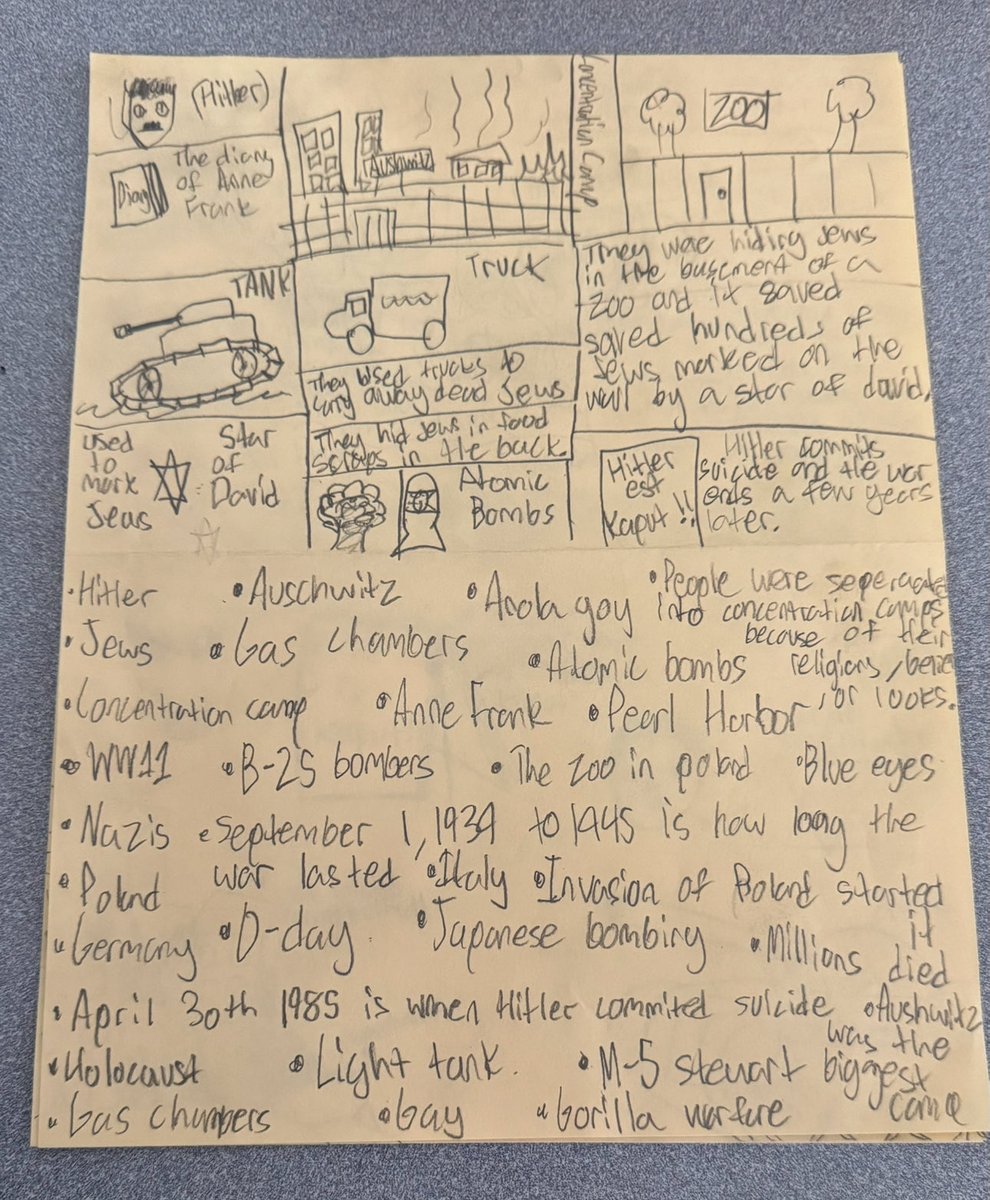 (Hitler)
The diary
of Anne
Frank
Diary
Aushwitz
Concentration Camp
ZOO
TANK
TRUCK
They used trucks to
carry away dead Jews
They hid Jews in food
scraps in the back.
They ware hiding Jews
in the bucement of a
zoo and it saved
saved hundreds of
Jews marked on the
wall by a star of david.
used
to
mark
Jeus
Star
of
David
Atomic
Bombs
Hitler
est
Kaput!!
Hitler commits
suicide and the war
ends a few years
later.
•Hitler
•Auschwitz
•Anola gay
•People were seperated
into concentration camps
because of their
religions,
or looks.
•Jews
•Gas chambers
•Atomic bombs
•Concentration camp
•Anne Frank
•Pearl Harbor
•WW11
•B-25 bombers
•The zoo in polard
•Blue eyes
•Nazis
•September 1, 1939 to 1945 is how long the
war lasted
•Poland
•Italy
•Invasion of Poland started
it
•Germany
•D-day
•Japanese bombing
•Millions died
•April 30th 1985 is when Hitler commited suicide
•Aushwitz
was the
biggest
camp
•Holocaust
•Light tank.
•M-5 stewart
•Gas chambers
•Gay
•Gorilla warfure